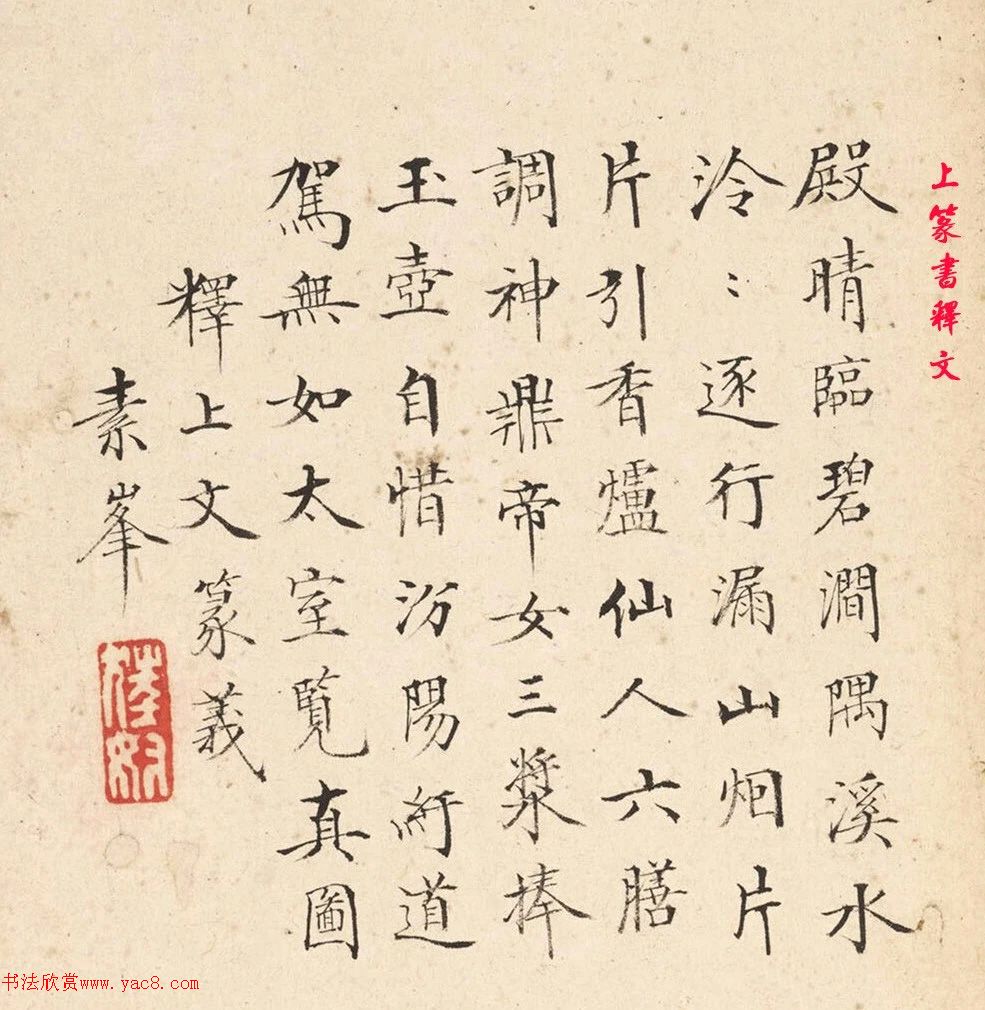 上篆書釋文
殿晴臨碧澗隅溪水
泠〻逐行漏山烟片
片引香爐仙人六膳
調神鼎帝女三漿捧
玉壺自惜汾陽紆道
駕無如太室覧真圖
釋上文篆義
素峯
书法欣赏www.yac8.com